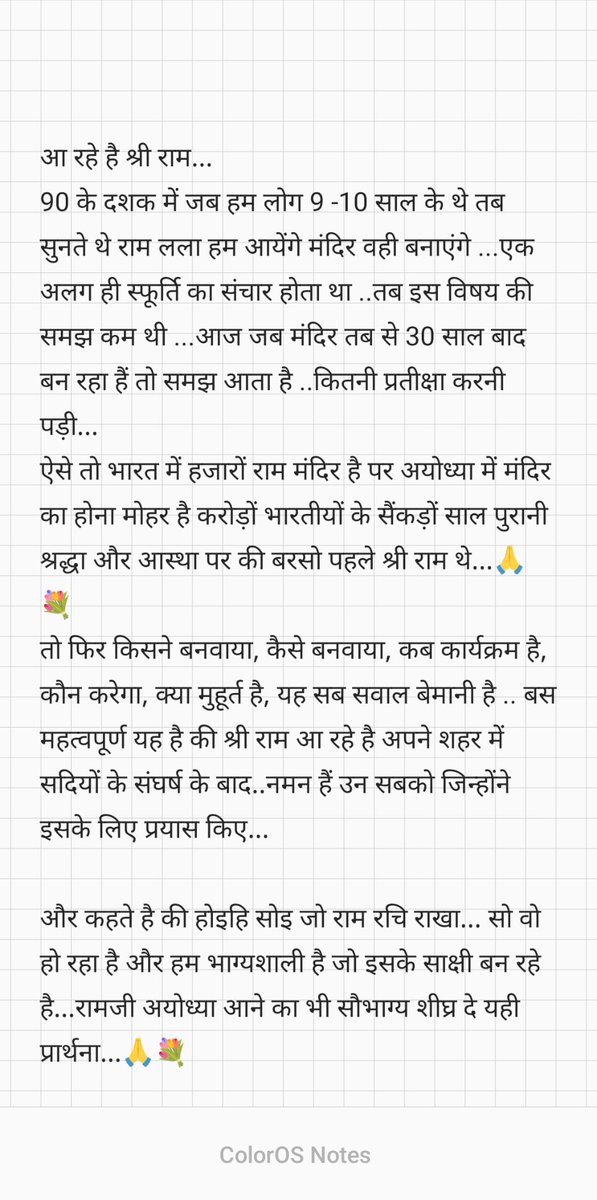 आ रहे है श्री राम...
90 के दशक में जब हम लोग 9 -10 साल के थे तब
सुनते थे राम लला हम आयेंगे मंदिर वही बनाएंगे ...एक
अलग ही स्फूर्ति का संचार होता था ..तब इस विषय की
समझ कम थी ...आज जब मंदिर तब से 30 साल बाद
बन रहा हैं तो समझ आता है ..कितनी प्रतीक्षा करनी
पड़ी...
ऐसे तो भारत में हजारों राम मंदिर है पर अयोध्या में मंदिर
का होना मोहर है करोड़ों भारतीयों के सैंकड़ों साल पुरानी
श्रद्धा और आस्था पर की बरसो पहले श्री राम थे...🙏
💐
तो फिर किसने बनवाया, कैसे बनवाया, कब कार्यक्रम है,
कौन करेगा, क्या मुहूर्त है, यह सब सवाल बेमानी है .. बस
महत्वपूर्ण यह है की श्री राम आ रहे है अपने शहर में
सदियों के संघर्ष के बाद..नमन हैं उन सबको जिन्होंने
इसके लिए प्रयास किए...
और कहते है की होइहि सोइ जो राम रचि राखा... सो वो
हो रहा है और हम भाग्यशाली है जो इसके साक्षी बन रहे
है...रामजी अयोध्या आने का भी सौभाग्य शीघ्र दे यही
प्रार्थना...🙏💐
ColorOS Notes